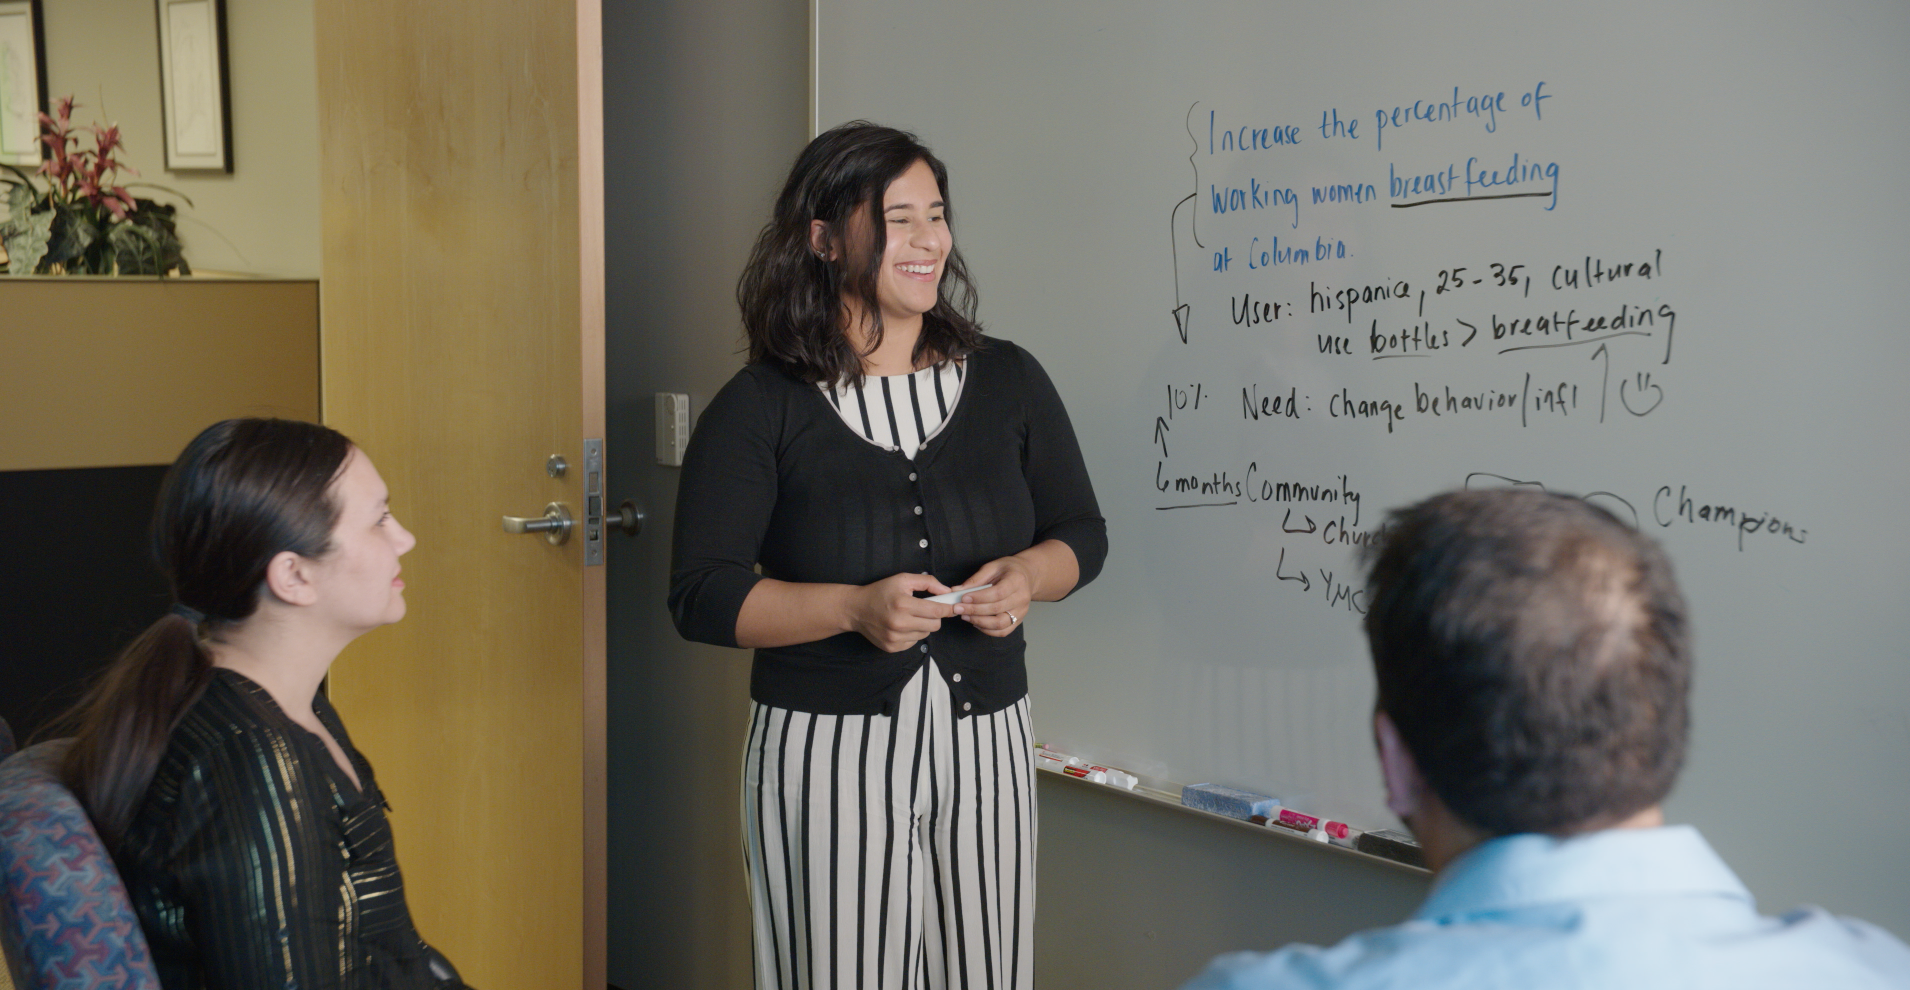 Increase the percentage of
working women breastfeeding
at Columbia.
User: hispanic, 25-35, cultural
use bottles > breatfeeding
10% Need: change behavior/infl
6 months Community
Champions